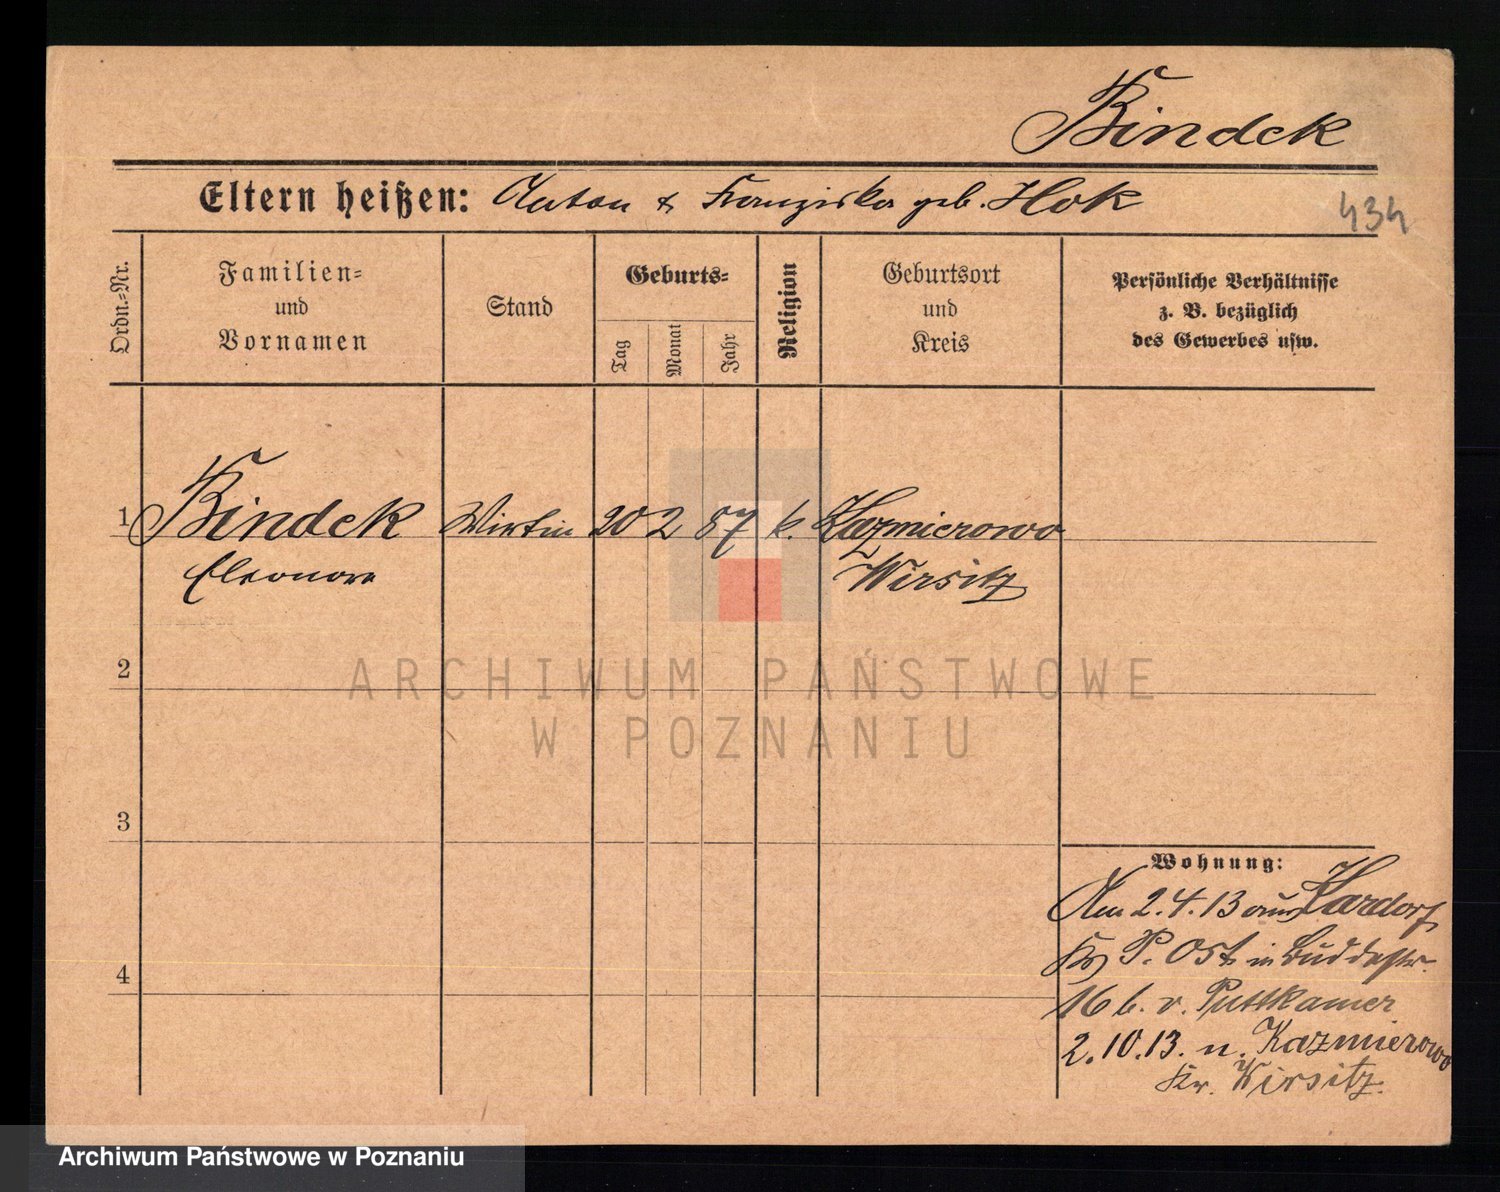 Bindek
Eltern heißen: Anton & Franziska geb. Hok
434
Ordn.=Nr.
Familien=
und
Vornamen
Stand
Geburts=
Tag
Monat
Jahr
Religion
Geburtsort
und
Kreis
Persönliche Verhältnisse
z. B. bezüglich
des Gewerbes usw.
1 Bindek Wirtin 20 2 87 k. Kazmierowo
Eleonore Wirsitz
2
ARCHIWUM PAŃSTWOWE
W POZNANIU
3
Wohnung:
Am 2.4.13 aus Kardorf
Kr. P. Ost in Buddestr.
4
16 b. v. Puttkamer
2.10.13. n. Kazmierowo
Kr. Wirsitz.
Archiwum Państwowe w Poznaniu